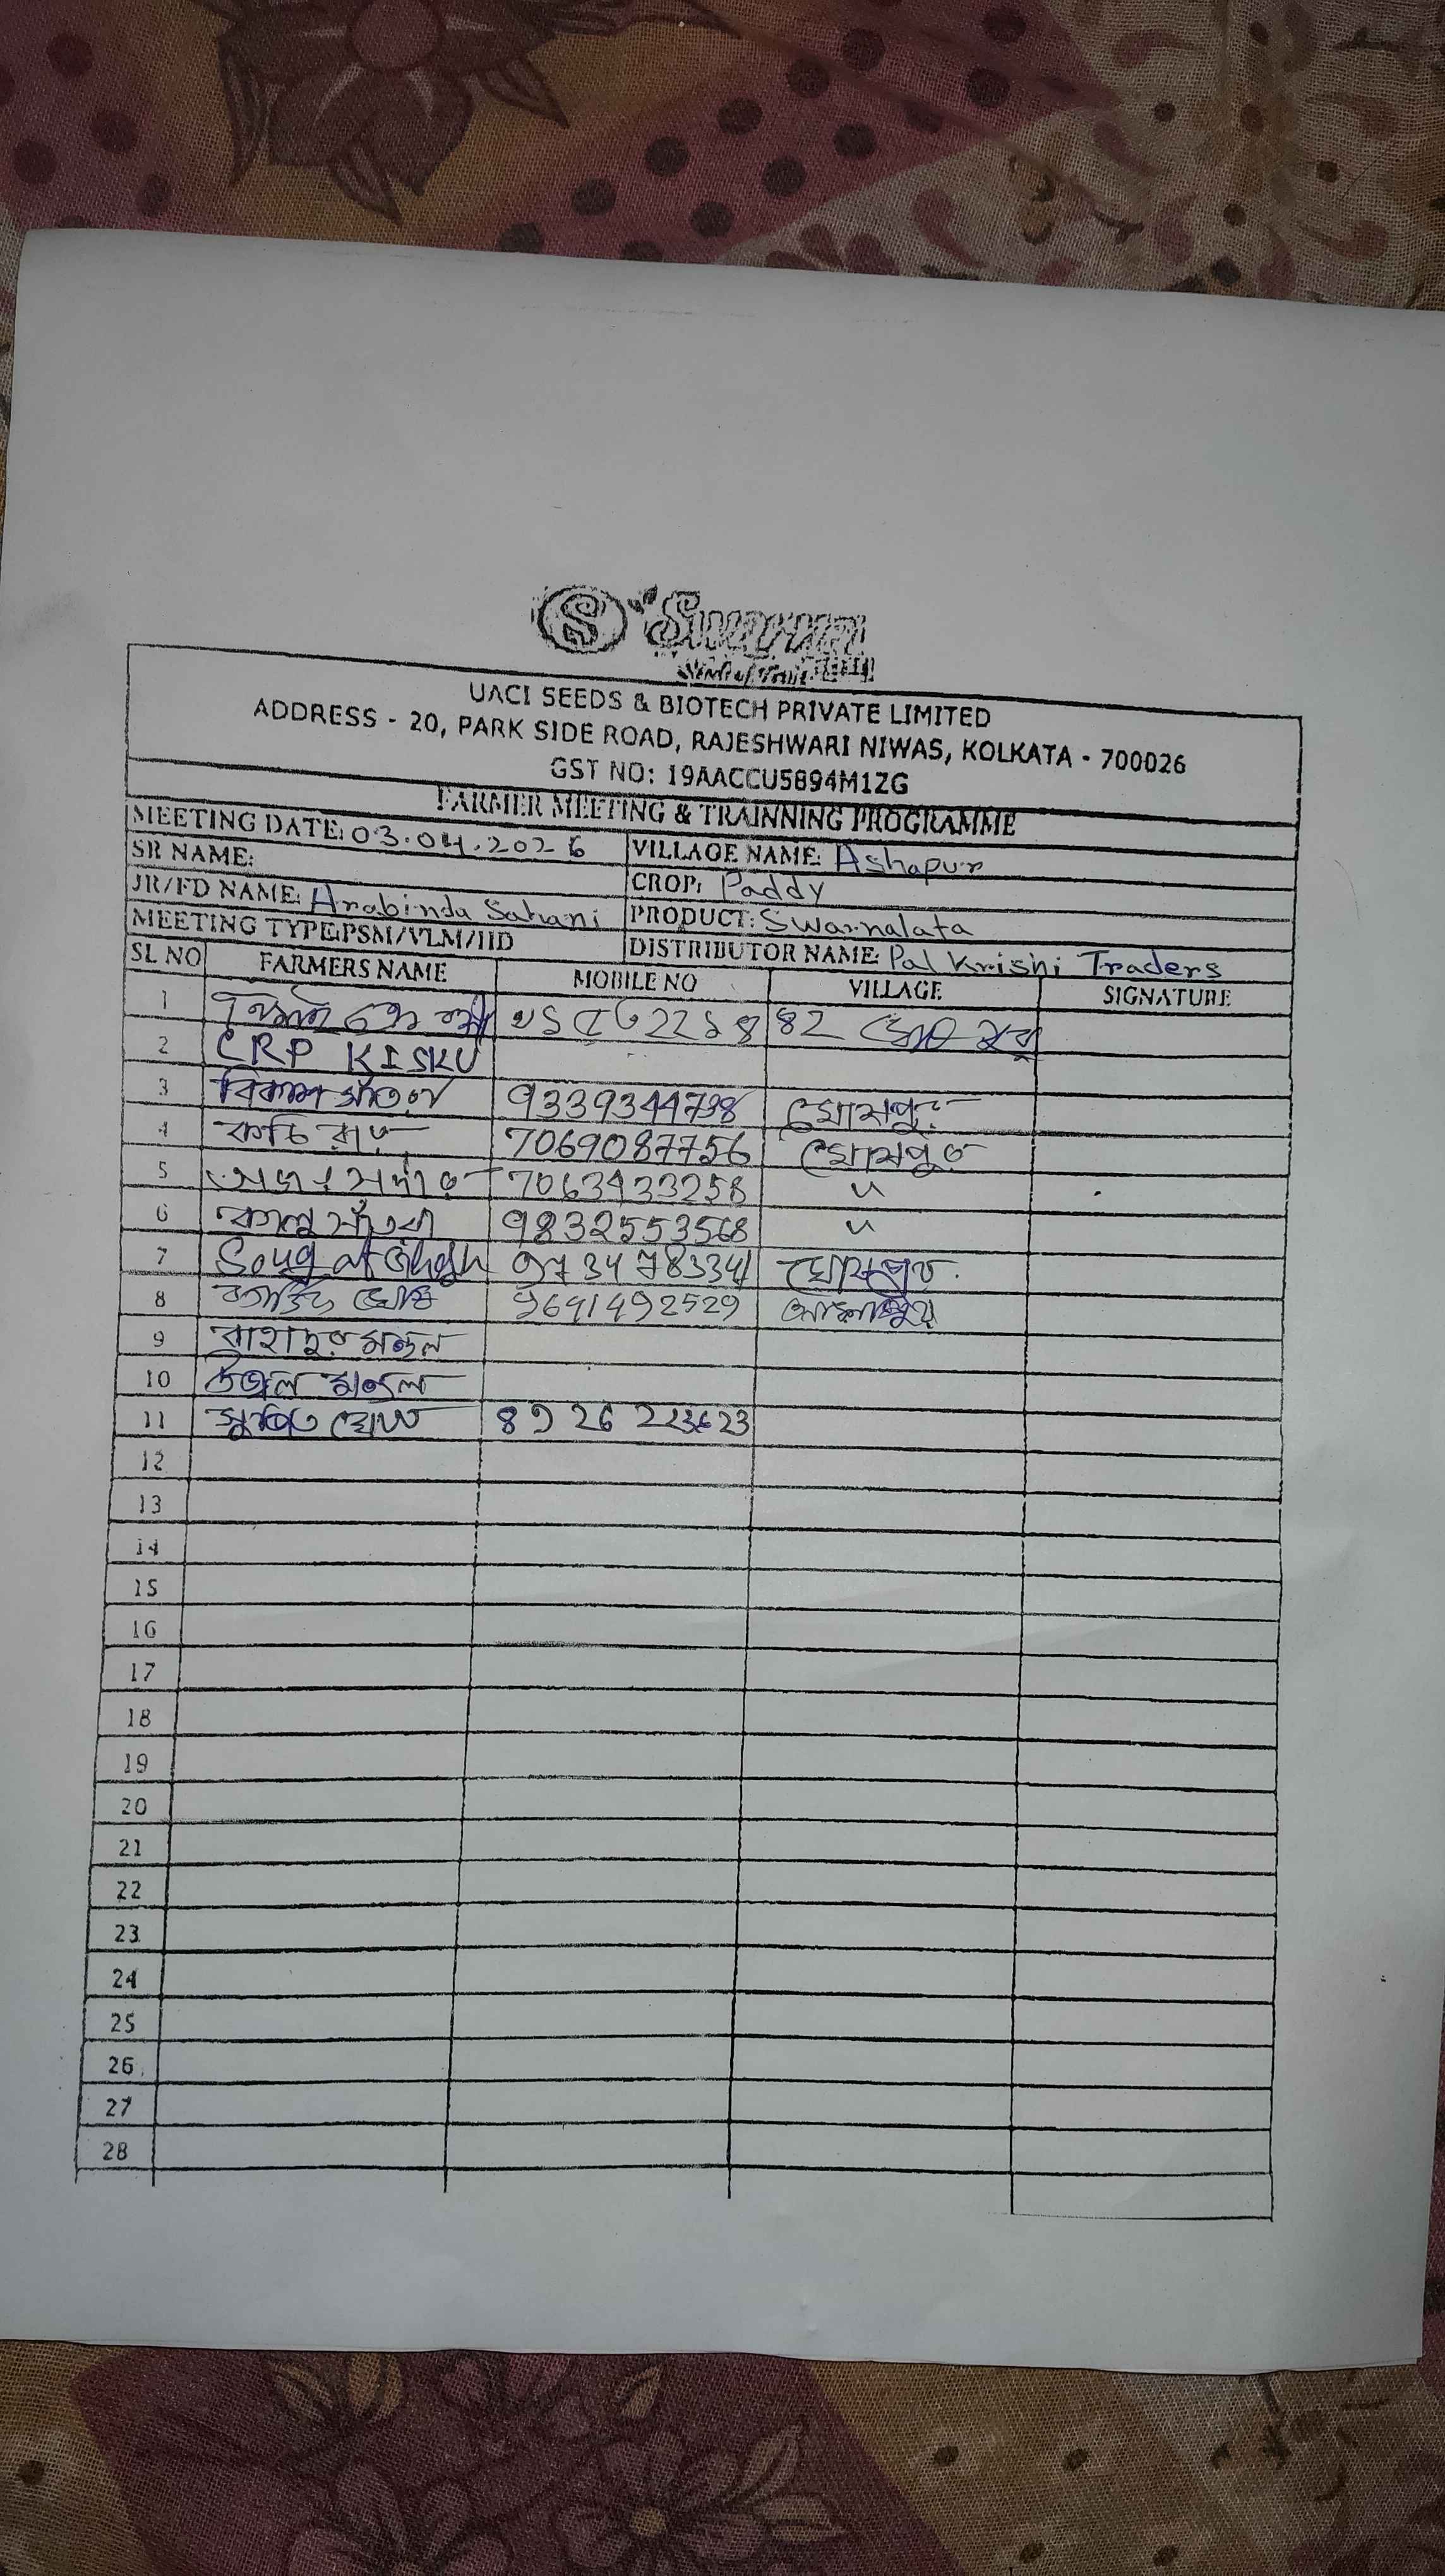 S Swarna
UACI SEEDS & BIOTECH PRIVATE LIMITED
ADDRESS - 20, PARK SIDE ROAD, RAJESHWARI NIWAS, KOLKATA - 700026
GST NO: 19AACCU5894M1ZG
FARMER MEETING & TRAINNING PROGRAMME
MEETING DATE: 03.04.2026 VILLAGE NAME: Ashapur
SR NAME: CROP: Paddy
JR/FD NAME: Arabinda Sahani PRODUCT: Swarnalata
MEETING TYPE:PSM/VLM/IID DISTRIBUTOR NAME: Pal Krishi Traders
SL NO FARMERS NAME MOBILE NO VILLAGE SIGNATURE
1
2 CRP KISKU
3 বিকাশ 9339344798 ঘোষপুর
4 7069087756 ঘোষপুর
5 7063933258 "
6 কালু সাঁতরা 9832553568 "
7 9734783341 ঘোষপুর
8 কার্তিক ঘোষ 9641492529 আশাপুর
9 বাহাদুর মন্ডল
10 উজ্জল মন্ডল
11 ঘোষ 89 26 223623
12
13
14
15
16
17
18
19
20
21
22
23
24
25
26
27
28